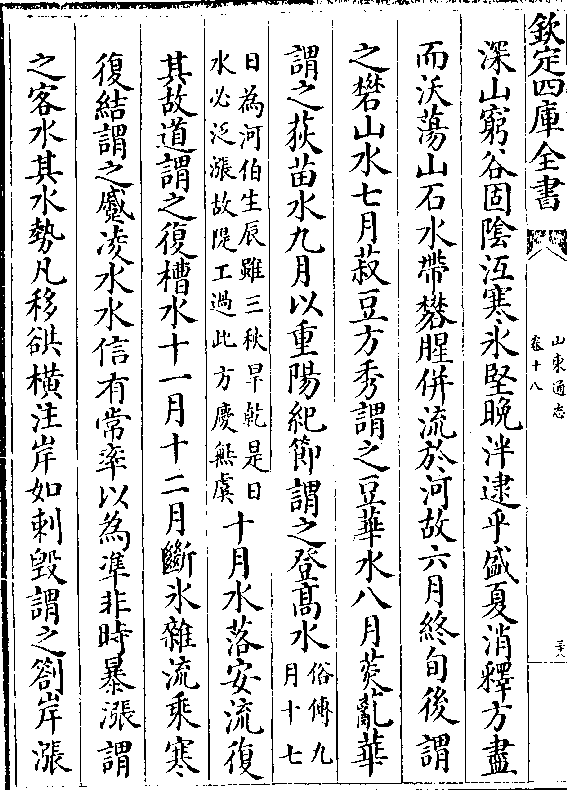 欽定四庫全書
山東通志
卷十八
深山窮谷固陰沍寒氷堅晚泮逮乎盛夏消釋方盡
而沃蕩山石水帶礬腥併流於河故六月終旬後謂
之礬山水七月菽豆方秀謂之豆華水八月荻薍華
謂之荻苗水九月以重陽紀節謂之登髙水俗傳九
月十七
日為河伯生辰雖三秋旱乾是日
水必泛漲故隄工過此方慶無虞
十月水落安流復
其故道謂之復槽水十一月十二月斷氷雜流乘寒
復結謂之蹙凌水水信有常率以為凖非時暴漲謂
之客水其水勢凡移谼橫注岸如刺毀謂之劄岸漲